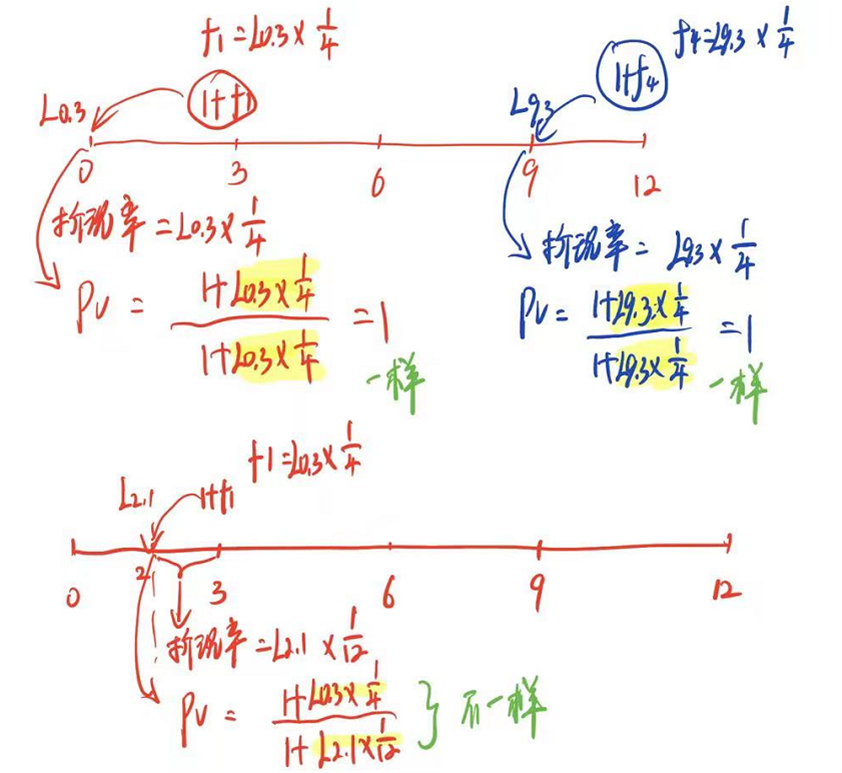 f1=L0.3×1/4
1+f1
L0.3
0
3
6
9
12
折现率=L0.3×1/4
PV = (1+L0.3×1/4)/(1+L0.3×1/4) =1
一样
f4=L9.3×1/4
1+f4
L9.3
折现率= L9.3×1/4
PV= (1+L9.3×1/4)/(1+L9.3×1/4) =1
一样
f1=L0.3×1/4
L2.1
1+f1
0
2
3
6
9
12
折现率=L2.1×1/12
PV = (1+L0.3×1/4)/(1+L2.1×1/12) } 不一样